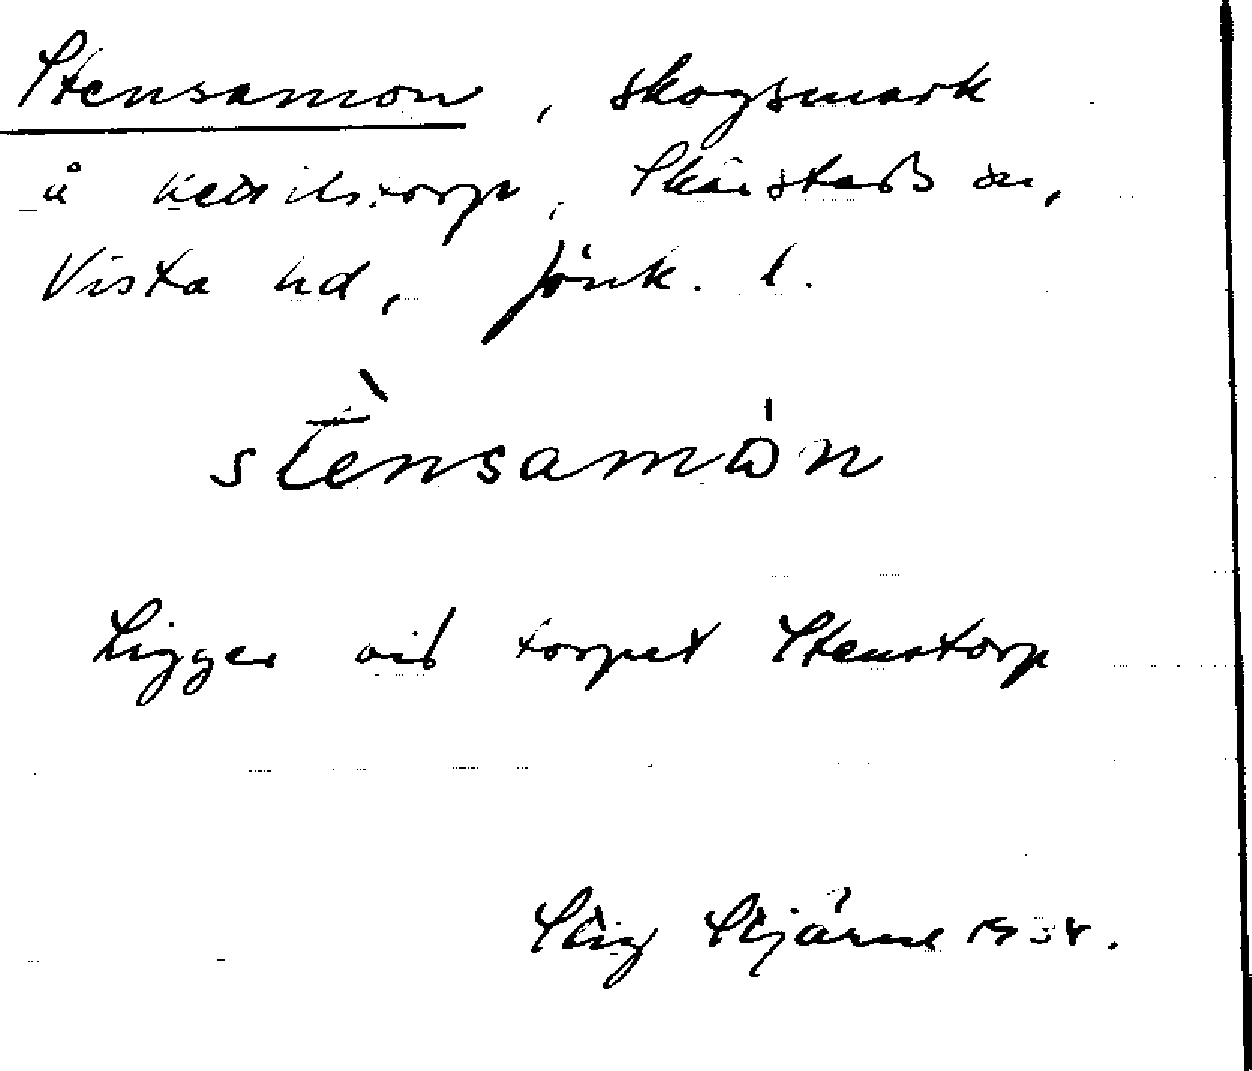 Stensamon, skogsmark
å Kettilstorp, Skärstads sn,
Vista hd, Jönk. l.
stènsamὼn
Ligger vid torpet Stenstorp
Stig Stjärne